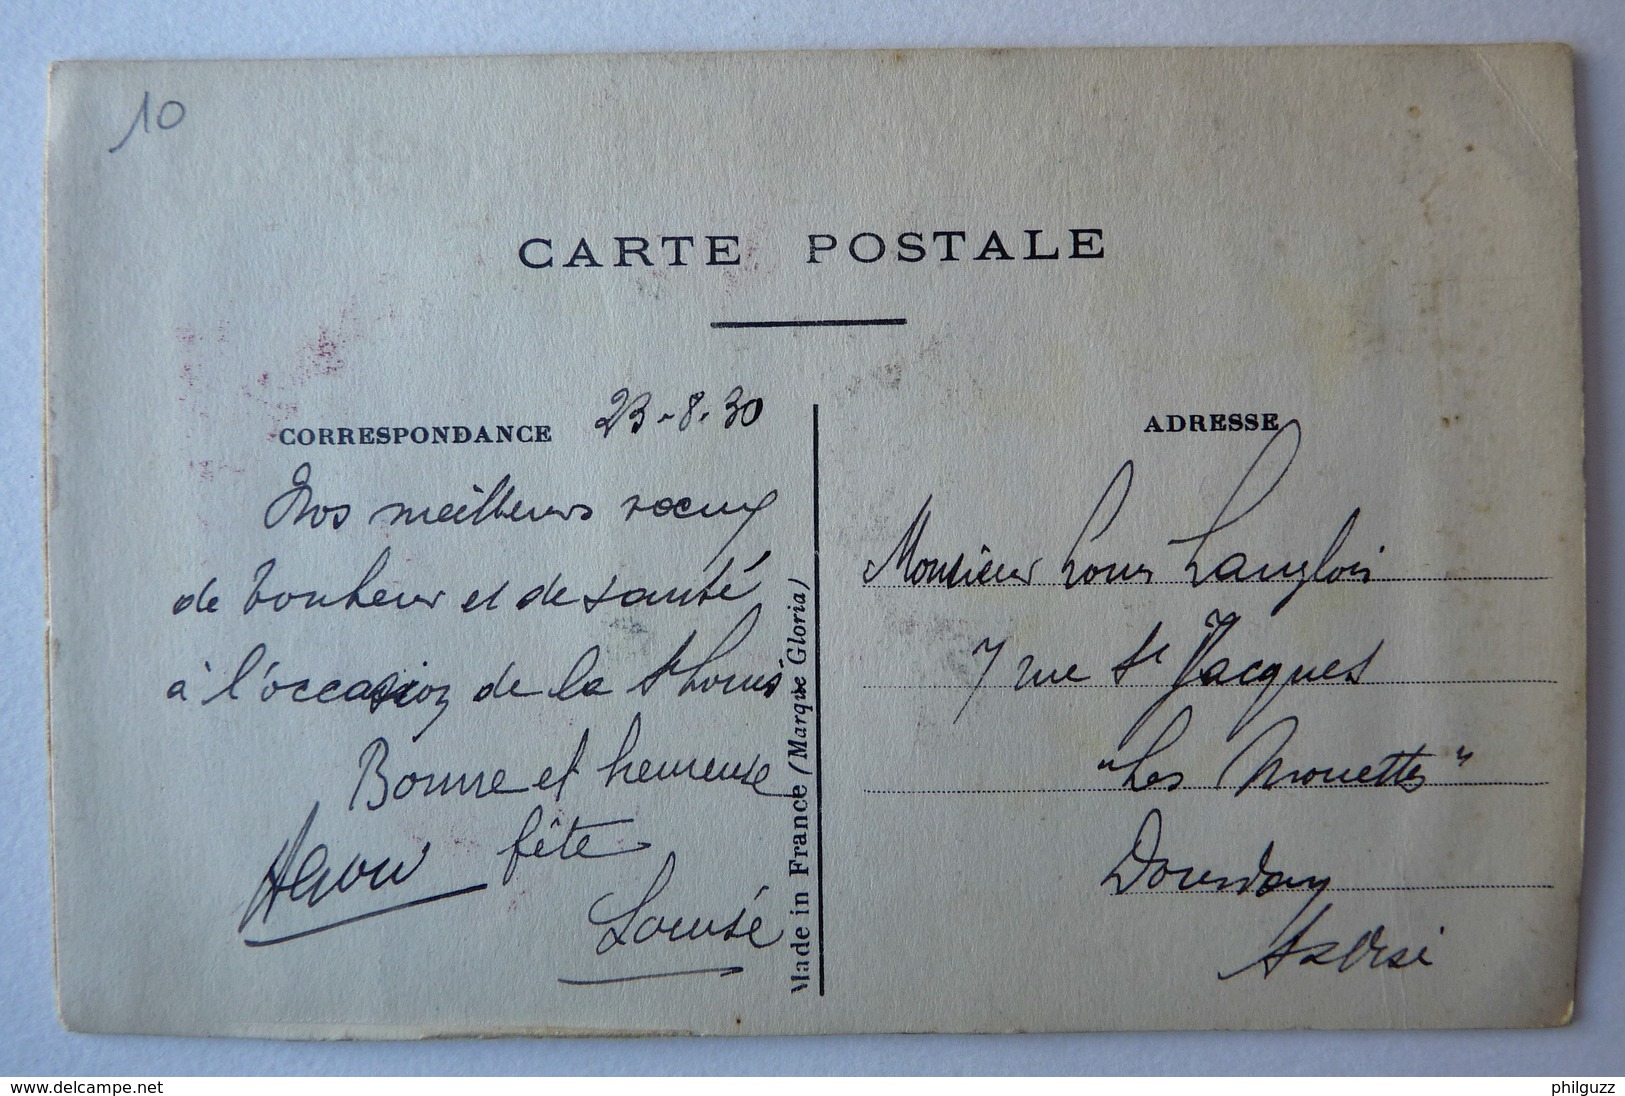 10
CARTE POSTALE
CORRESPONDANCE 23-8-30
Nos meilleurs voeux
de bonheur et de santé
à l'occasion de la St Louis
Bonne et heureuse
fête
Louise
Made in France (Marque Gloria)
ADRESSE
Monsieur Louis Langlois
7 rue St Jacques
"Les Mouettes"
Dourdan
S & Oise
www.delcampe.net
philguzz